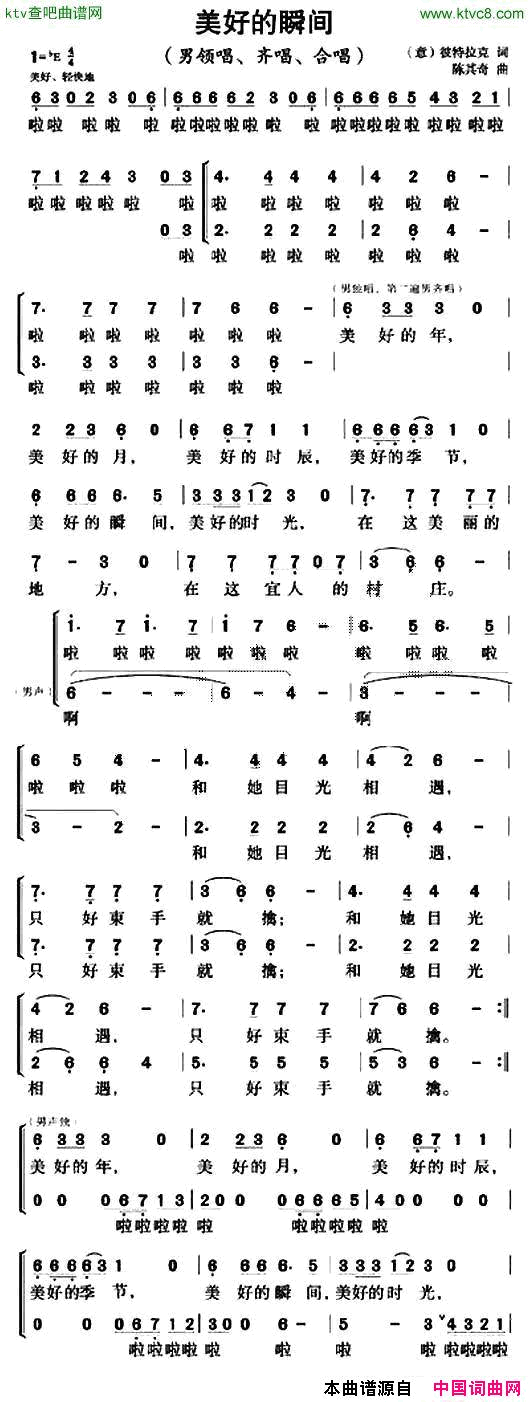 ktv查吧曲谱网
www.ktvc8.com
美好的瞬间
(男领唱、齐唱、合唱)
1=♭E 4/4
(意) 彼特拉克 词
陈其奇 曲
美好、轻快地
6 3 0 2 3 0 6 | 6 6 6 6 6 5 4 3 2 1
啦 啦 啦 啦 啦 啦啦啦啦啦啦啦啦啦啦
7 1 2 4 3 0 3 | 4. 4 4 4 | 4 2 6 - |
啦 啦 啦 啦 啦 啦 啦 啦 啦 啦 啦 啦 啦
0 3 | 2. 2 2 2 | 2 6 4 - |
啦 啦 啦 啦 啦 啦 啦 啦
7. 7 7 7 | 7 6 6 - | 6 3 3 3 0
(男独唱、第二遍男齐唱)
啦 啦 啦 啦 啦 啦 啦 美 好 的 年,
3. 3 3 3 | 3 3 6 - |
啦 啦 啦 啦 啦 啦 啦
2 2 3 6 0 | 6 6 7 1 1 | 6 6 6 6 3 1 0 |
美 好 的 月, 美 好 的 时 辰, 美好的季 节,
6 6 6 6. 5 | 3 3 3 1 2 3 0 | 7. 7 7 7 7 |
美 好 的 瞬 间, 美好的时 光, 在 这 美 丽 的
7 - 3 0 | 7 7 7 7 0 7 | 3 6 6 - |
地 方, 在 这 宜 人 的 村 庄。
1. 7 1. 7 | 1 1 7 6 - | 6. 5 6. 5 |
啦 啦 啦 啦 啦 啦 啦 啦 啦 啦 啦 啦
(男声)
6 - - - | - 6 - 4 - | 3 - - - |
啊 啊
6 5 4 - | 4. 4 4 4 | 4 2 6 - |
啦 啦 啦 和 她 目 光 相 遇,
3 - 2 - | 2. 2 2 2 | 2 6 4 - |
和 她 目 光 相 遇,
7. 7 7 7 | 3 6 6 - | 4. 4 4 4 |
只 好 束 手 就 擒; 和 她 目 光
7. 7 7 7 | 3 6 6 - | 2. 2 2 2 |
只 好 束 手 就 擒; 和 她 目 光
4 2 6 - | 7. 7 7 7 | 7 6 6 - :||
相 遇, 只 好 束 手 就 擒。
2 6 6 4 | 5. 5 5 5 | 7 6 6 - :||
相 遇, 只 好 束 手 就 擒。
6 3 3 3 3 0 | 2 2 3 6 0 | 6 6 7 1 1 |
美 好 的 年, 美 好 的 月, 美 好 的 时 辰,
0 0 0 6 7 1 3 | 2 0 0 0 6 6 6 5 | 4 0 0 0 0 |
啦啦啦啦 啦 啦啦啦啦 啦
6 6 6 6 3 1 0 | 6 6 6 6. 5 | 3 3 3 1 2 3 0 |
美好的季 节, 美 好 的 瞬 间,美好的时 光,
0 0 0 6 7 1 2 | 3 0 0 6 - | 5 - 3 4 3 2 1 |
啦啦啦啦 啦 啦 啦 啦啦啦啦
本曲谱源自 中国词曲网